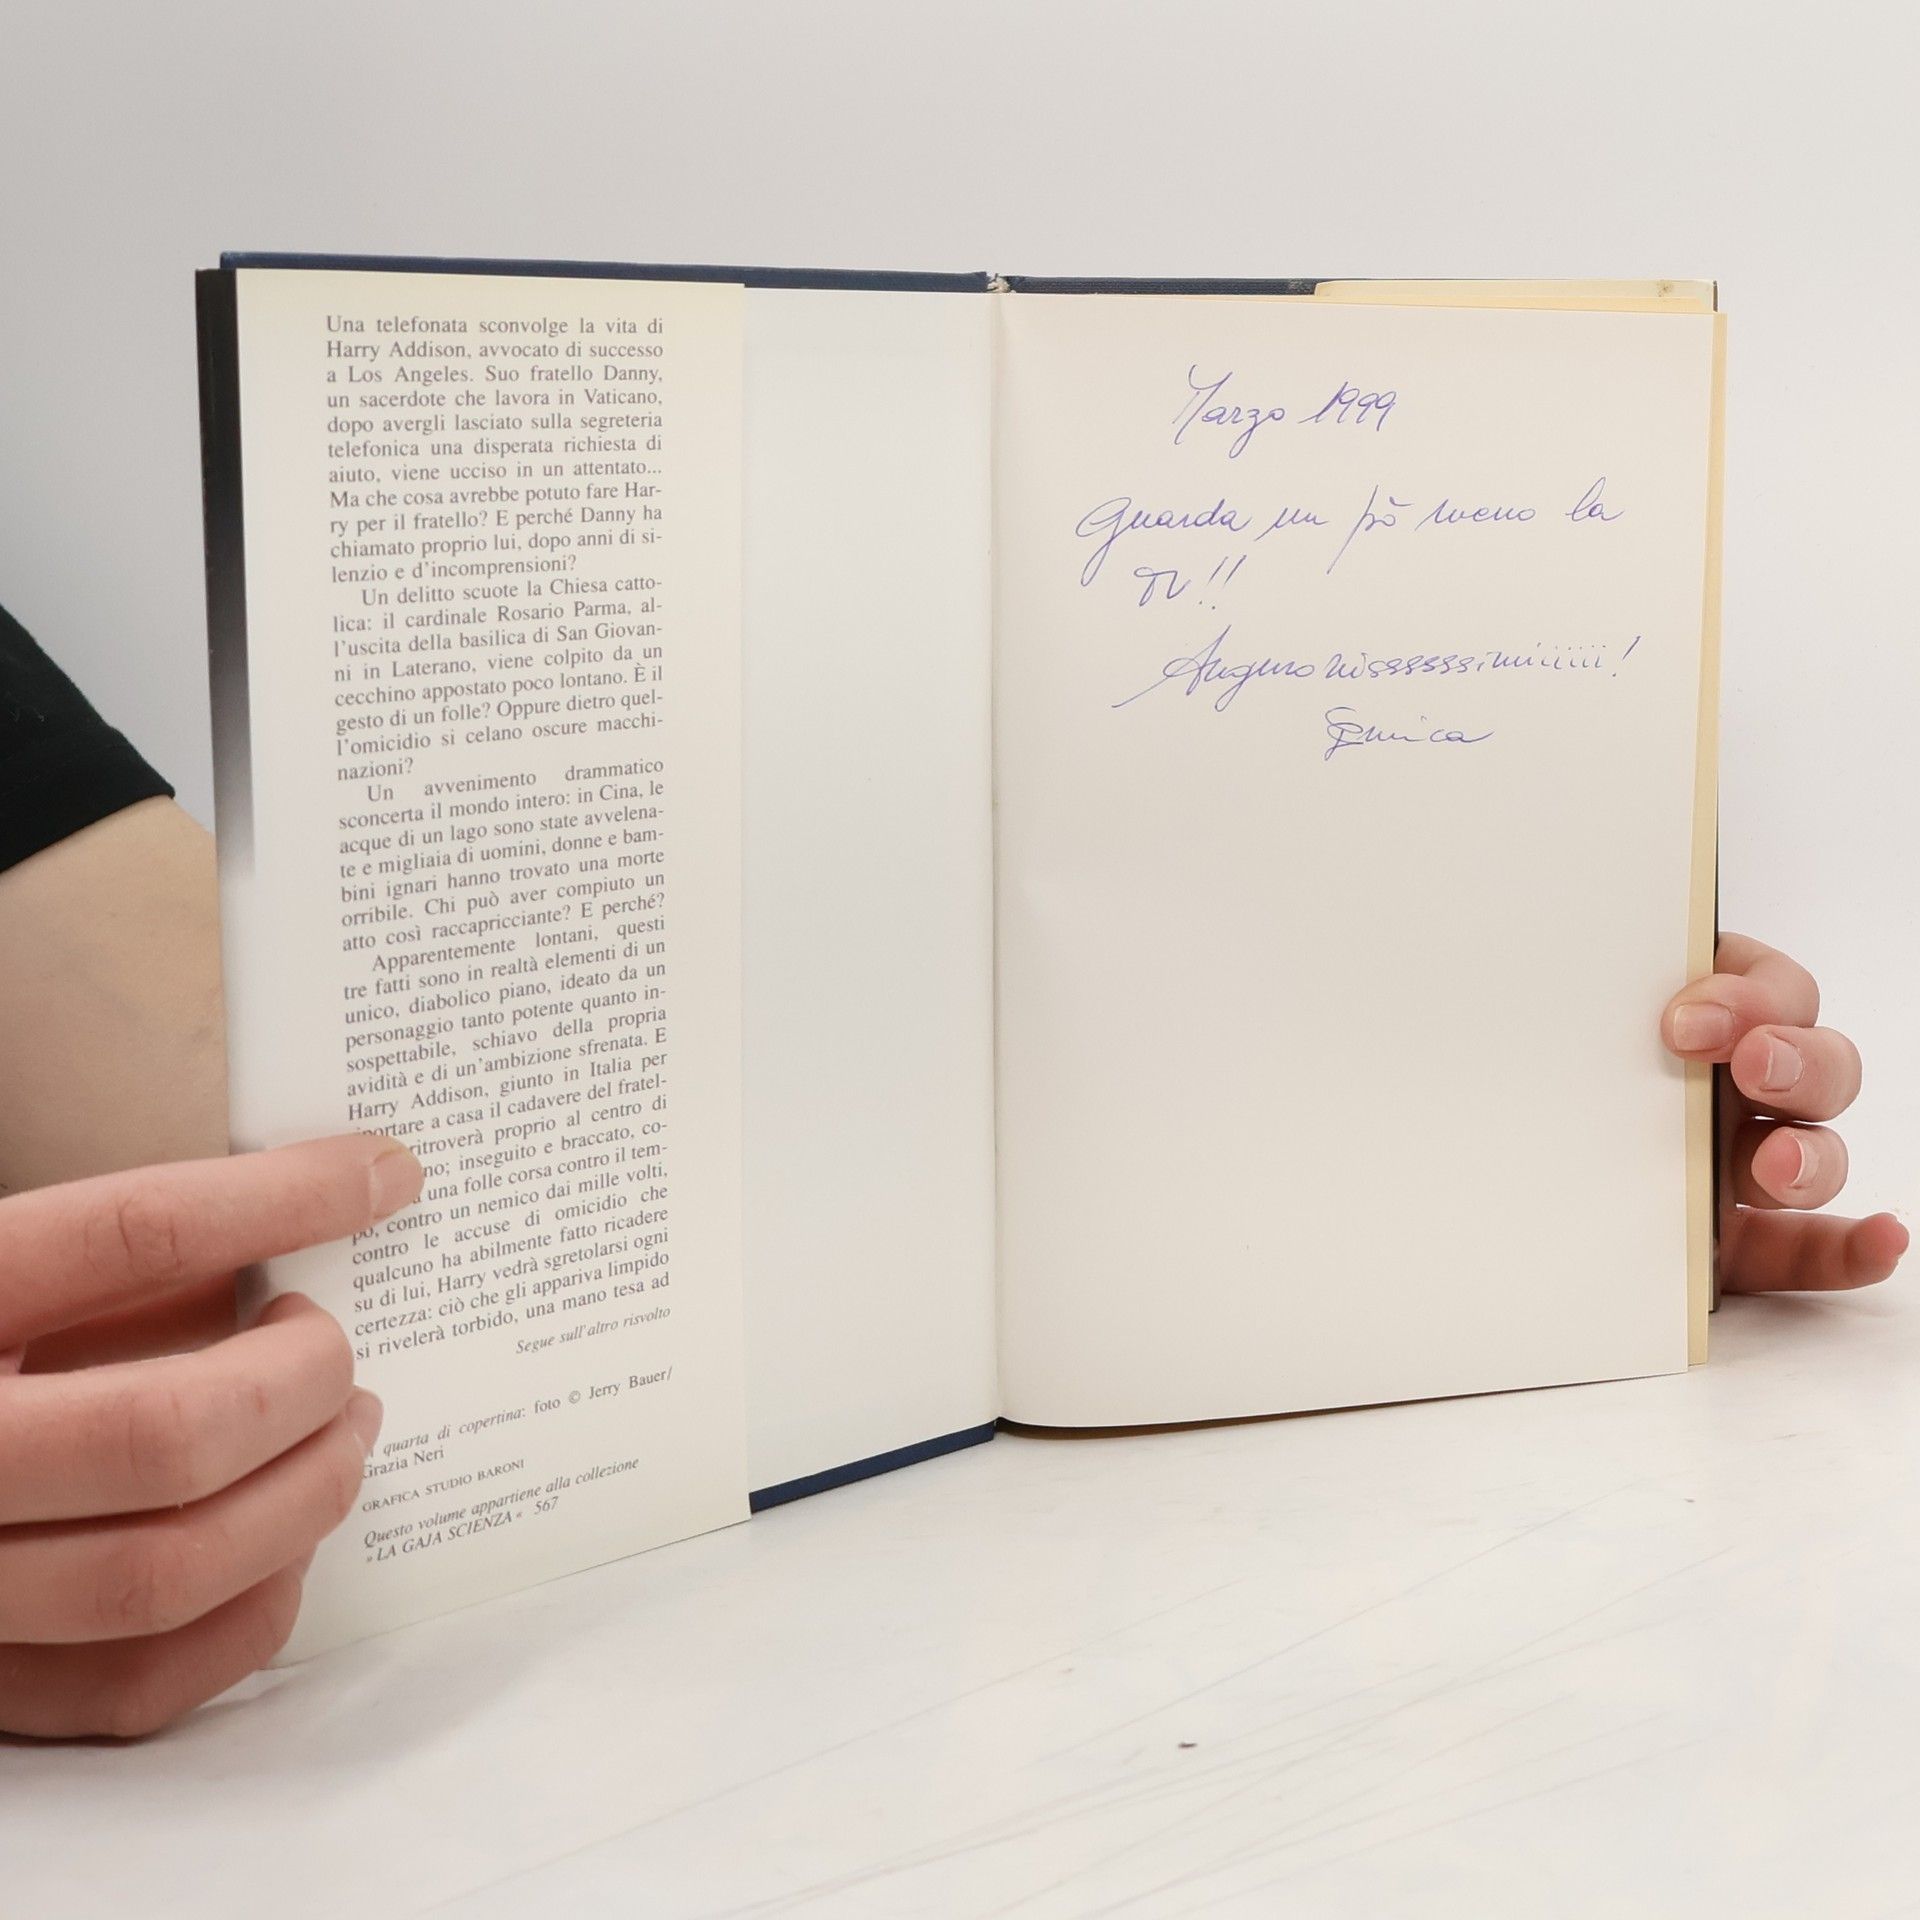 Una telefonata sconvolge la vita di
Harry Addison, avvocato di successo
a Los Angeles. Suo fratello Danny,
un sacerdote che lavora in Vaticano,
dopo avergli lasciato sulla segreteria
telefonica una disperata richiesta di
aiuto, viene ucciso in un attentato...
Ma che cosa avrebbe potuto fare Har-
ry per il fratello? E perché Danny ha
chiamato proprio lui, dopo anni di si-
lenzio e d'incomprensioni?
Un delitto scuote la Chiesa catto-
lica: il cardinale Rosario Parma, al-
l'uscita della basilica di San Giovan-
ni in Laterano, viene colpito da un
cecchino appostato poco lontano. È il
gesto di un folle? Oppure dietro quel-
l'omicidio si celano oscure macchi-
nazioni?
Un avvenimento drammatico
sconcerta il mondo intero: in Cina, le
acque di un lago sono state avvelena-
te e migliaia di uomini, donne e bam-
bini ignari hanno trovato una morte
orribile. Chi può aver compiuto un
atto così raccapricciante? E perché?
Apparentemente lontani, questi
tre fatti sono in realtà elementi di un
unico, diabolico piano, ideato da un
personaggio tanto potente quanto in-
sospettabile, schiavo della propria
avidità e di un'ambizione sfrenata. E
Harry Addison, giunto in Italia per
portare a casa il cadavere del fratel-
ritroverà proprio al centro di
no; inseguito e braccato, co-
una folle corsa contro il tem-
po, contro un nemico dai mille volti,
contro le accuse di omicidio che
qualcuno ha abilmente fatto ricadere
su di lui, Harry vedrà sgretolarsi ogni
certezza: ciò che gli appariva limpido
si rivelerà torbido, una mano tesa ad
Segue sull'altro risvolto
quarta di copertina: foto © Jerry Bauer/
Grazia Neri
GRAFICA STUDIO BARONI
Questo volume appartiene alla collezione
»LA GAJA SCIENZA« 567
Marzo 1999
Guarda un pò meno la
TV!!
Auguronissssssimiiiiii!